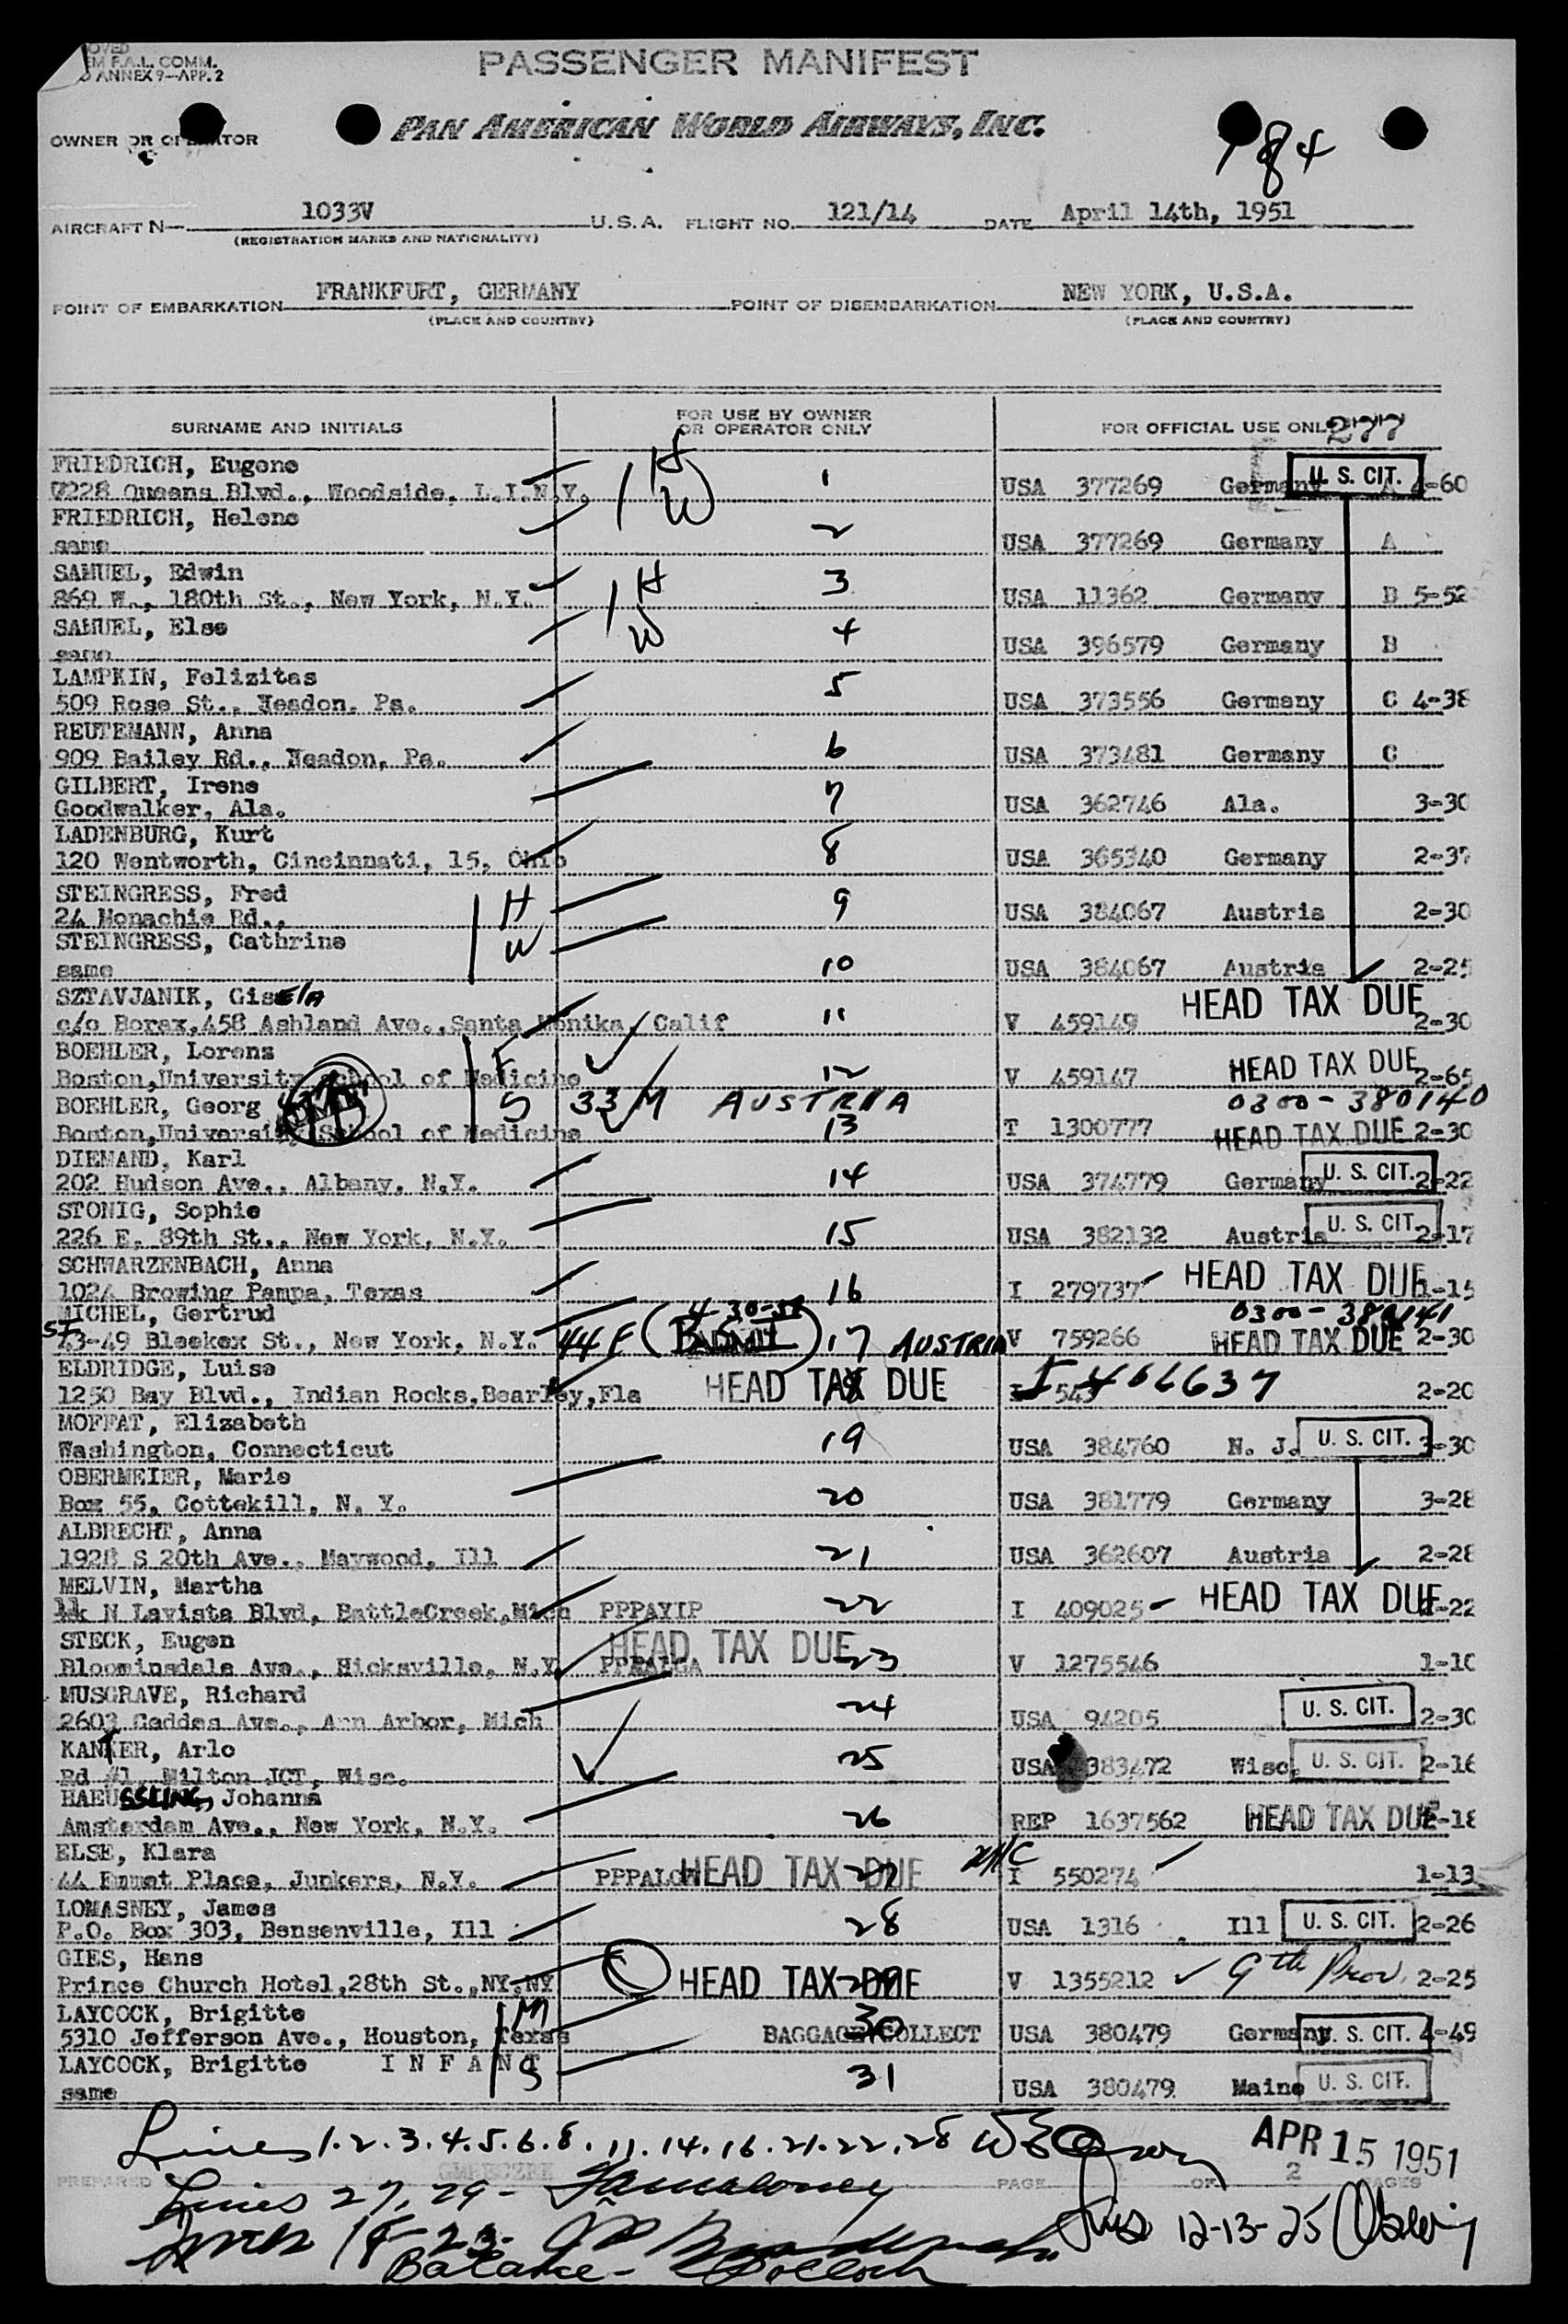 OVED
EM F.A.L. COMM.
O ANNEX 9—APP. 2
PASSENGER MANIFEST
OWNER OR OPERATOR
PAN AMERICAN WORLD AIRWAYS, INC.
184
AIRCRAFT N— 1033V U.S.A. FLIGHT NO. 121/14 DATE April 14th, 1951
(REGISTRATION MARKS AND NATIONALITY)
POINT OF EMBARKATION FRANKFURT, GERMANY POINT OF DISEMBARKATION NEW YORK, U.S.A.
(PLACE AND COUNTRY) (PLACE AND COUNTRY)
SURNAME AND INITIALS FOR USE BY OWNER OR OPERATOR ONLY FOR OFFICIAL USE ONLY 277
FRIEDRICH, Eugene H
7228 Queens Blvd., Woodside, L.I.N.Y. W 1 USA 377269 Germany U. S. CIT. A 4-60
FRIEDRICH, Helene
same 2 USA 377269 Germany A
SAMUEL, Edwin H
869 W., 180th St., New York, N.Y. 3 USA 11362 Germany B 5-52
SAMUEL, Else W
same 4 USA 396579 Germany B
LAMPKIN, Felizitas
509 Rose St., Yeadon, Pa. 5 USA 373556 Germany C 4-38
REUTEMANN, Anna
909 Bailey Rd., Yeadon, Pa. 6 USA 373481 Germany C
GILBERT, Irene
Goodwalker, Ala. 7 USA 362746 Ala. 3-30
LADENBURG, Kurt
120 Wentworth, Cincinnati, 15, Ohio 8 USA 365340 Germany 2-37
STEINGRESS, Fred H
24 Monachie Rd., 9 USA 384067 Austria 2-30
STEINGRESS, Cathrine W
same 10 USA 384067 Austria 2-25
SZTAVJANIK, Gisela HEAD TAX DUE
c/o Borax,458 Ashland Ave.,Santa Monika, Calif 11 V 459149 2-30
BOEHLER, Lorenz F HEAD TAX DUE
Boston,University School of Medicine 12 V 459147 2-65
BOEHLER, Georg S 33 M AUSTRIA 0300-380140
Boston,University School of Medicine 13 T 1300777 HEAD TAX DUE 2-30
DIEMAND, Karl
202 Hudson Ave., Albany, N.Y. 14 USA 374779 Germany U. S. CIT. 2-22
STONIG, Sophie
226 E. 89th St., New York, N.Y. 15 USA 382132 Austria U. S. CIT. 2-17
SCHWARZENBACH, Anna
102A Browing Pampa, Texas 16 I 279737 HEAD TAX DUE 1-15
MICHEL, Gertrud 0300-380141
43-49 Bleekex St., New York, N.Y. 44 F ADMIT 17 AUSTRIA V 759266 HEAD TAX DUE 2-30
ELDRIDGE, Luise
1250 Bay Blvd., Indian Rocks,Bearley,Fla HEAD TAX DUE 18 I 466637 2-20
MOFFAT, Elizabeth
Washington, Connecticut 19 USA 384760 N. J. U. S. CIT. 3-30
OBERMEIER, Marie
Box 55, Cottekill, N. Y. 20 USA 381779 Germany 3-28
ALBRECHT, Anna
1928 S 20th Ave., Maywood, Ill 21 USA 362607 Austria 2-28
MELVIN, Martha
N Lavista Blvd, BattleCreek,Mich PPPAYIP 22 I 409025 HEAD TAX DUE 2-22
STECK, Eugen HEAD TAX DUE
Bloominsdale Ave., Hicksville, N.Y 23 V 1275546 1-10
MUSGRAVE, Richard
2603 Geddes Ave., Ann Arbor, Mich 24 USA 94205 U. S. CIT. 2-30
KANTER, Arlo
Rd #1, Milton JCT, Wisc. 25 USA 383472 Wisc. U. S. CIT. 2-16
HAEUSSLING, Johanna
Amsterdam Ave., New York, N.Y. 26 REP 1637562 HEAD TAX DUE 2-18
ELSE, Klara
44 Emmet Place, Junkers, N.Y. HEAD TAX DUE 27 I 550274 1-13
LOMASNEY, James
P.O. Box 303, Bensenville, Ill 28 USA 1316 Ill U. S. CIT. 2-26
GIES, Hans
Prince Church Hotel,28th St.,NY,NY HEAD TAX DUE 29 V 1355212 9th Prov. 2-25
LAYCOCK, Brigitte M
5310 Jefferson Ave., Houston, Texas 30 BAGGAGE COLLECT USA 380479 Germany U. S. CIT. 4-49
LAYCOCK, Brigitte INFANT S
same 31 USA 380479 Maine U. S. CIT.
Lines 1.2.3.4.5.6.8.11.14.16.21.22.28
APR 15 1951
PREPARED PAGE OF 2 PAGES
Lines 27, 29 -
18-23
Lines 12-13-25
Balance -